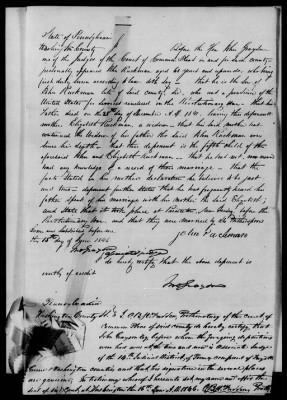 State of Pennsylvania
Washington County Before the Hon John Grayson
one of the Judges of the Court of Common Pleas in and for said county
personally appeared John Rachman aged 60 years and upwards, who being
first duly sworn according to law doth say that he is the Son of
John Rachman late of said county dec, who was a pensioner of the
United States for Services rendered in the Revolutionary War - that his
Father died on the 21st December A.D. 18 leaving this deponents
mother Elizabeth Rachman, a widow, that his said mother has
continued the Widow of his father the said John Rachman ever
since his death - that this deponent is the fifth child of the
aforesaid John and Elizabeth Rachman - that he has not or ever
had any knowledge of a record of their marriage - that the
facts stated in his mother's declaration he believes to be just
and true - deponent further states that he has frequently heard his
father speak of his marriage with his mother the said Elizabeth
and state that it took place at Princeton New Jersey before the
Revolutionary War - and that they were married by
Sworn and subscribed before me
the 15th day of June 1846 John Rachman
Jno Grayson
I do hereby certify that the above deponent is
worthy of credit
Jno Grayson
Pennsylvania
Washington County SS. I Prothonotary of the court of
Common Pleas of said county do hereby certify that
John Grayson Esq. before whom the foregoing depositions
was and is an Associate Judge
of the 14 Judicial District of Penna composed of Fayette
Greene & Washington counties and that his signature in the several places
are genuine. In testimony whereof I hereunto set my name and affix the
seal of said Court at Washington the 16th June A.D. 1846